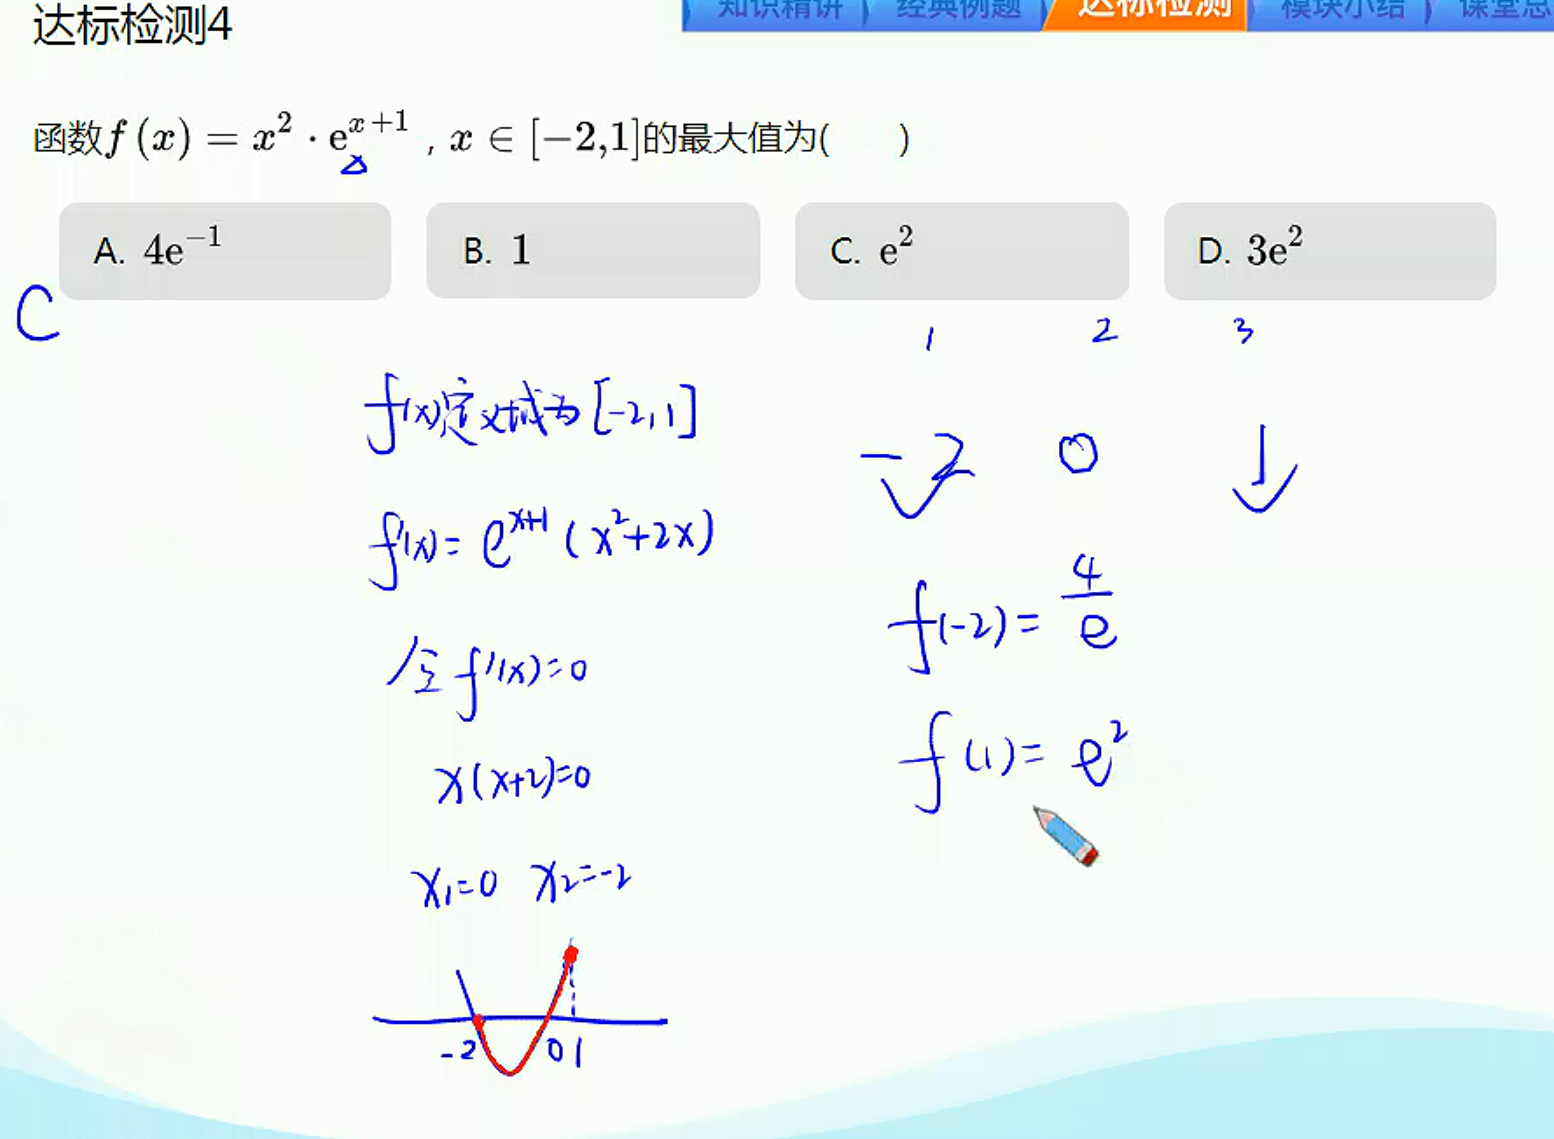 达标检测4
知识精讲 经典例题 达标检测 模块小结 课堂总
函数f(x) = x² · e^{x+1}, x ∈ [−2,1]的最大值为( )
A. 4e⁻¹ B. 1 C. e² D. 3e²
C
f(x)定义域为[-2,1]
f'(x)= e^{x+1}(x²+2x)
令f'(x)=0
x(x+2)=0
x₁=0 x₂=-2
-2 0 1
1 2 3
-2 0 1
f(-2)= 4/e
f(1)= e²